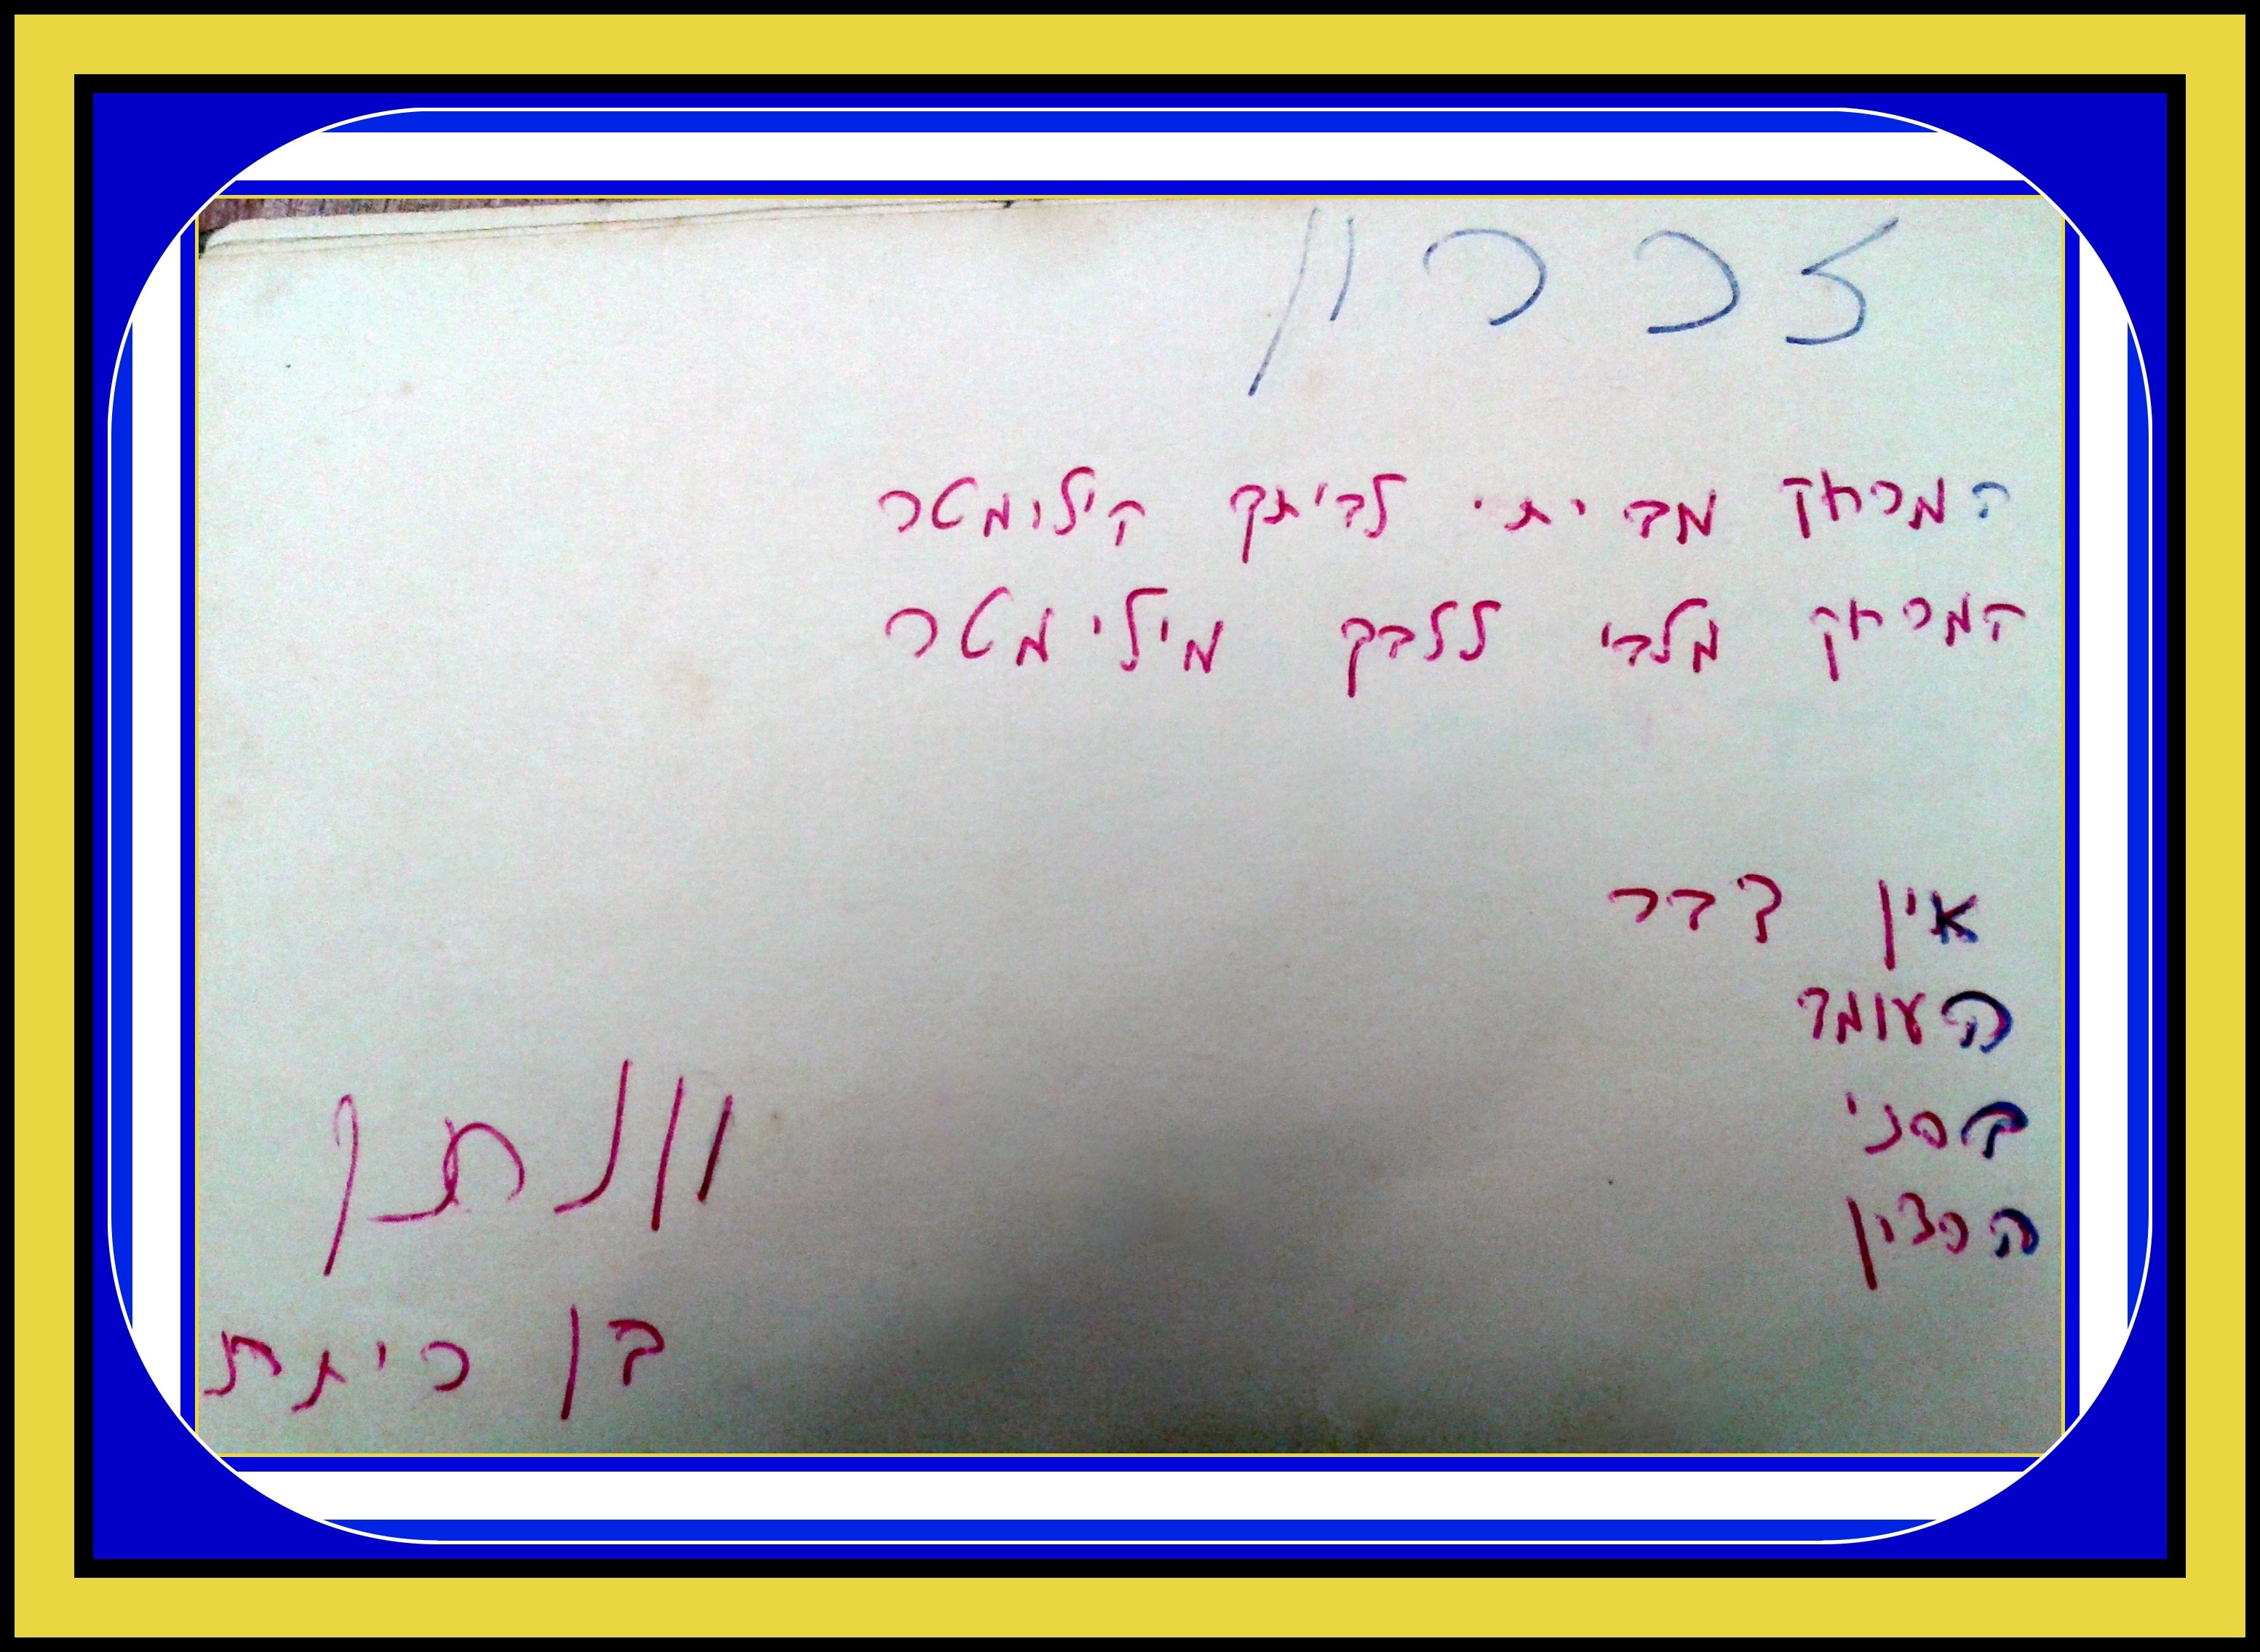 זכרון
המרחק מביתי לביתך קילומטר
המרחק מלבי ללבך מילימטר
אין דבר
העומד
בפני
הרצון
יונתן
בן כיתת